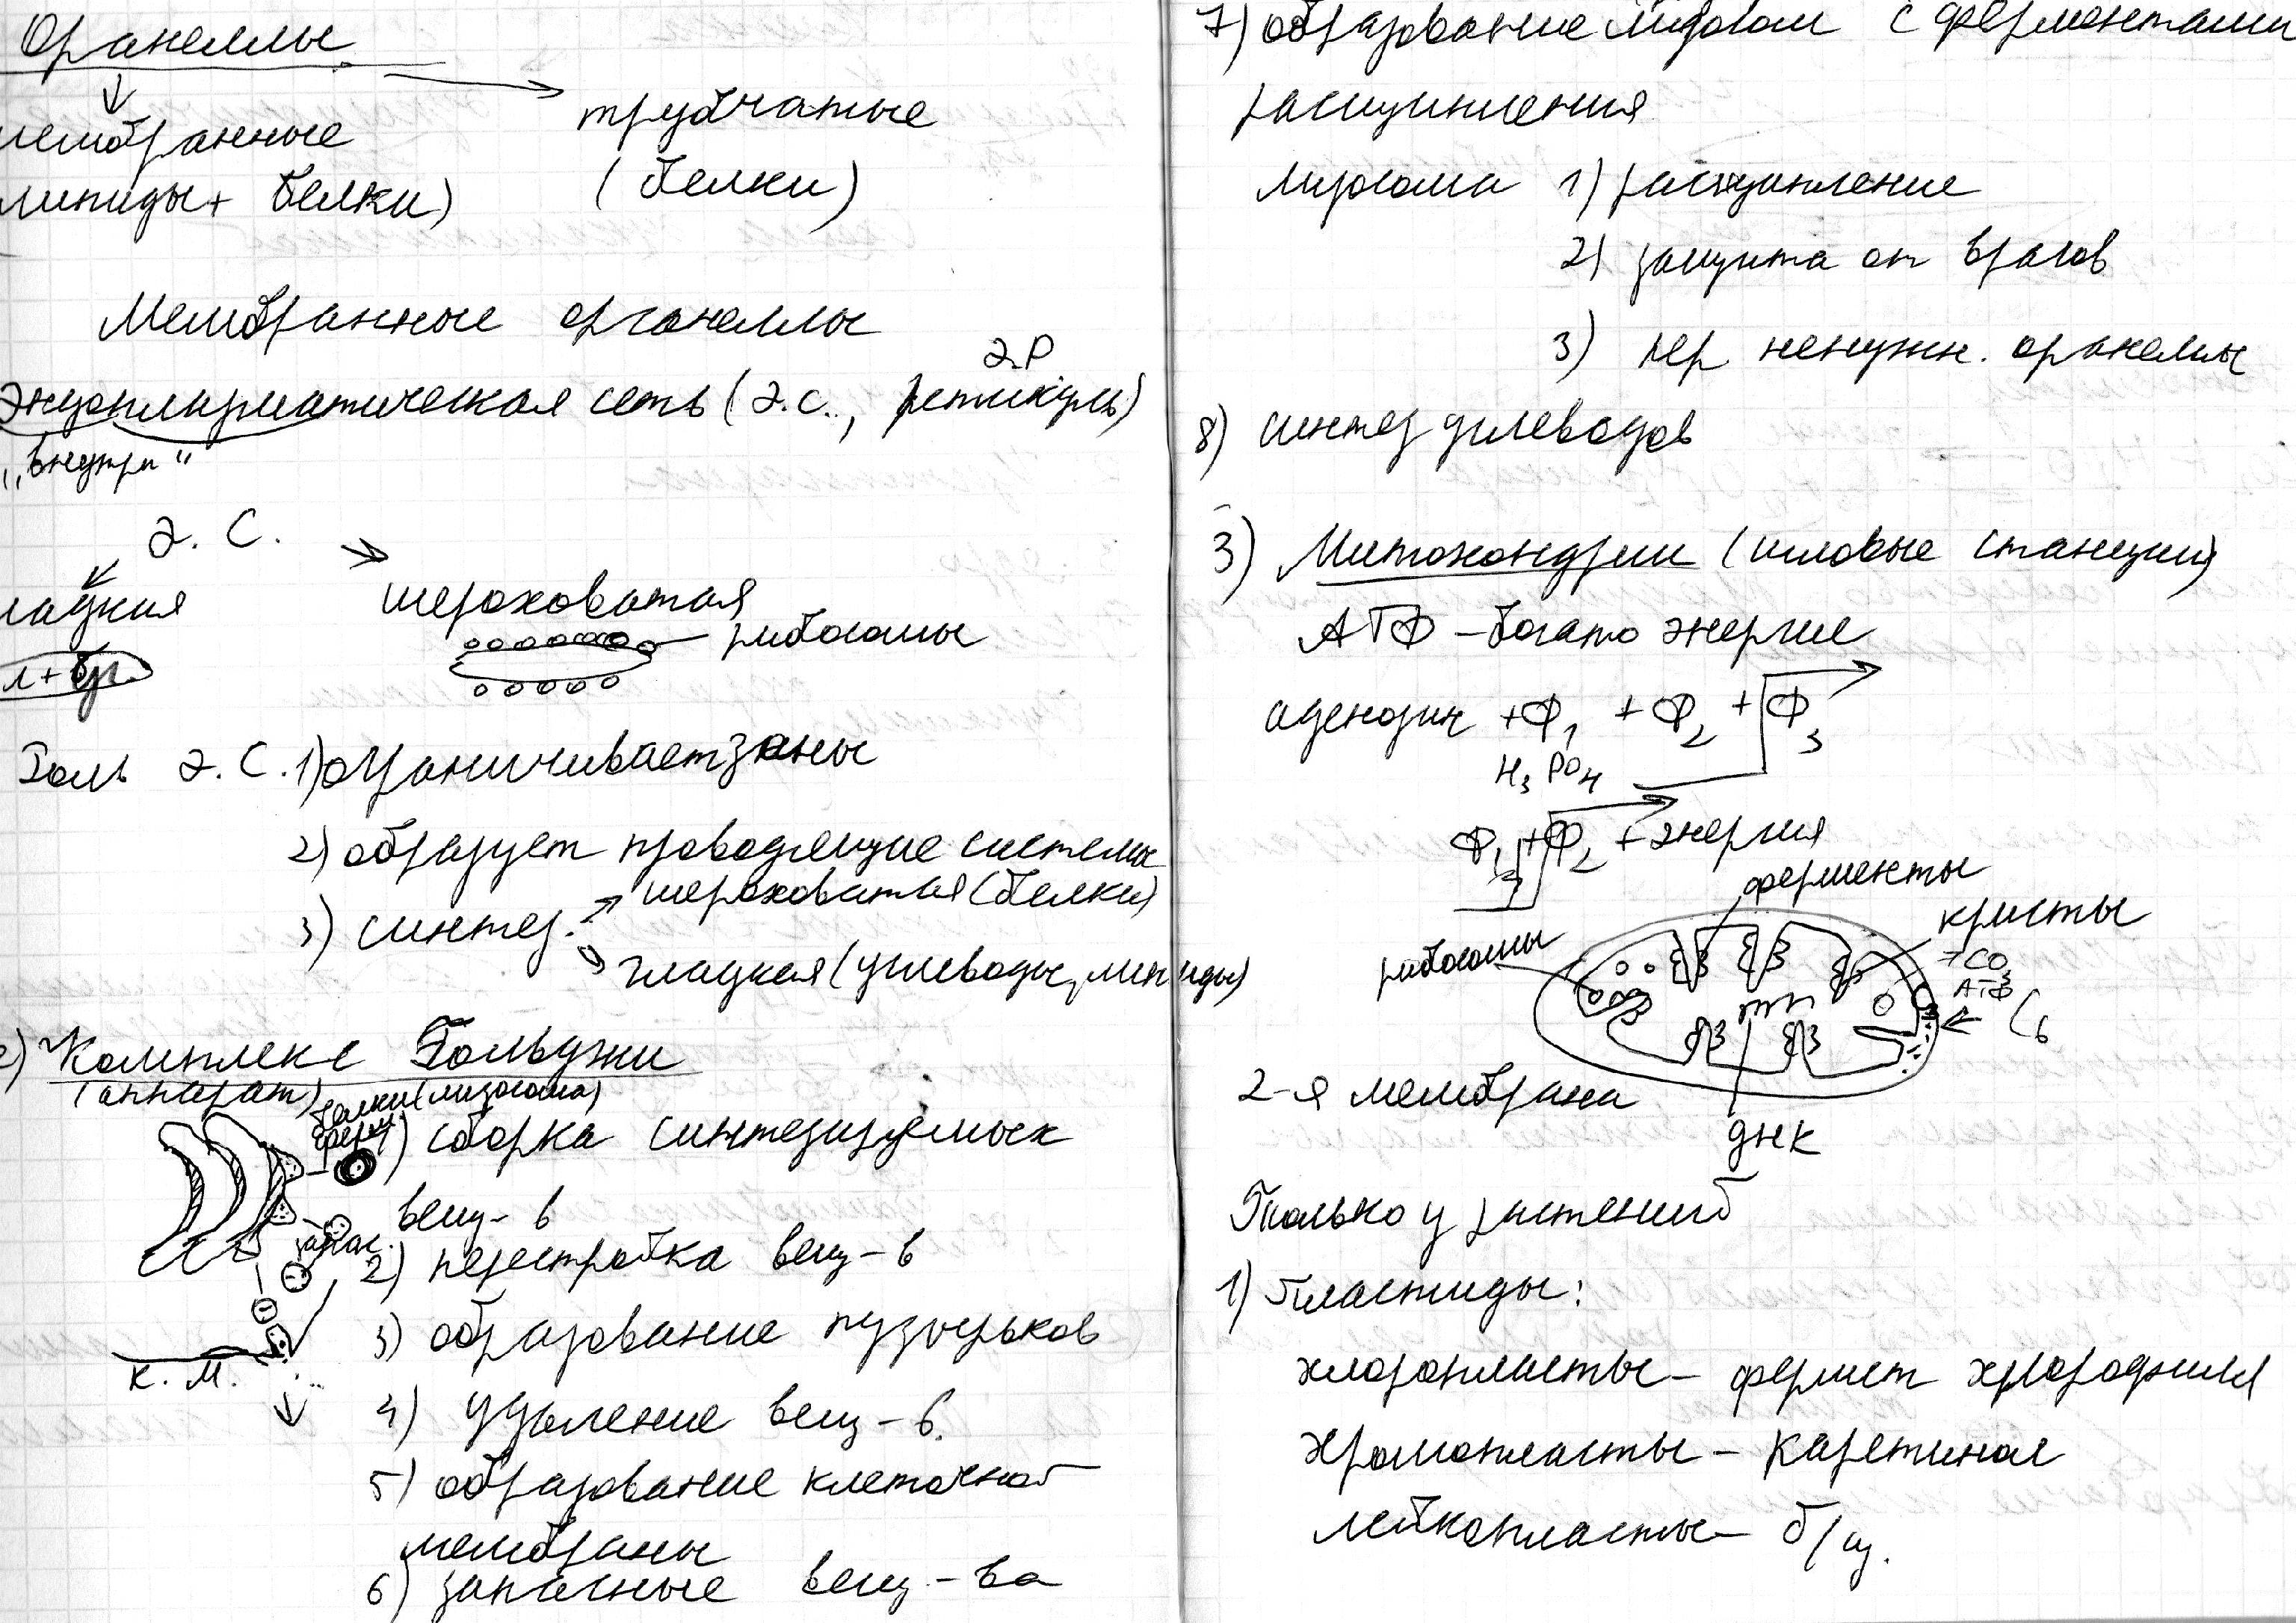 Органеллы
мембранные
трубчатые
липиды + белки)
(белки)
Мембранные органеллы
Э.Р
Эндоплазматическая сеть (Э.С., ретикулъ)
"внутри"
Э. С.
ладкая
шероховатая
рибосомы
Роль Э.С. 1) ограничивает зоны
2) образует проводящие системы
3) синтез.
шероховатая (белки)
гладкая (углеводы, липиды)
2) Комплекс Гольджи
(аппарат)
белки (лизосома)
1) сборка синтезируемых
вещ-в
запас.
2) перестройка вещ-в
3) образование пузырьков
к. м.
4) удаление вещ-в.
5) образование клеточной
мембраны
6) запасные вещ-ва
7) образование лизосом с ферментами
расщипления
лизосома 1) расщипление
2) защита от врагов
3) пер ненужн. органеллы
8) синтез углеводов
3) Митохондрии (силовые станции)
АТФ - богато энергие
аденозин + Ф1 + Ф2 + Ф3
H3PO4
Ф1 + Ф2 + энергия
ферменты
рибосомы
кристы
АТФ
2-я мембрана
днк
Только у растений
1) Пластиды:
хлоропласты - фермет хлорофилл
хромопласты - каретиное
лейкопласты - б/ц.